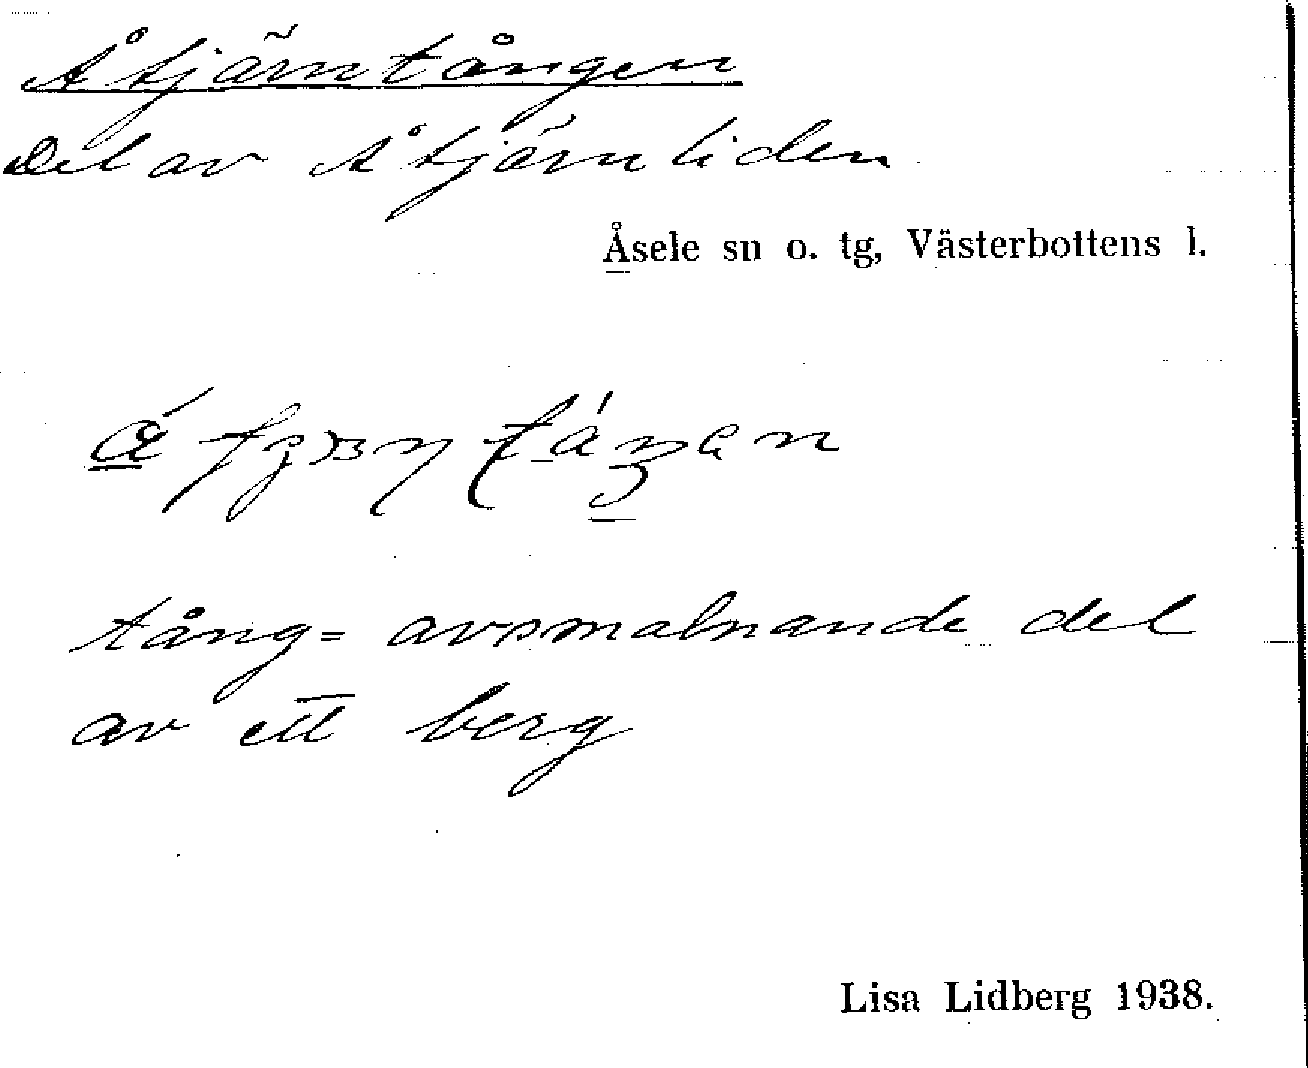 Åtjärntången
Del av Åtjärnliden
Åsele sn o. tg, Västerbottens l.
tång = avsmalnande del
av ett berg
Lisa Lidberg 1938.